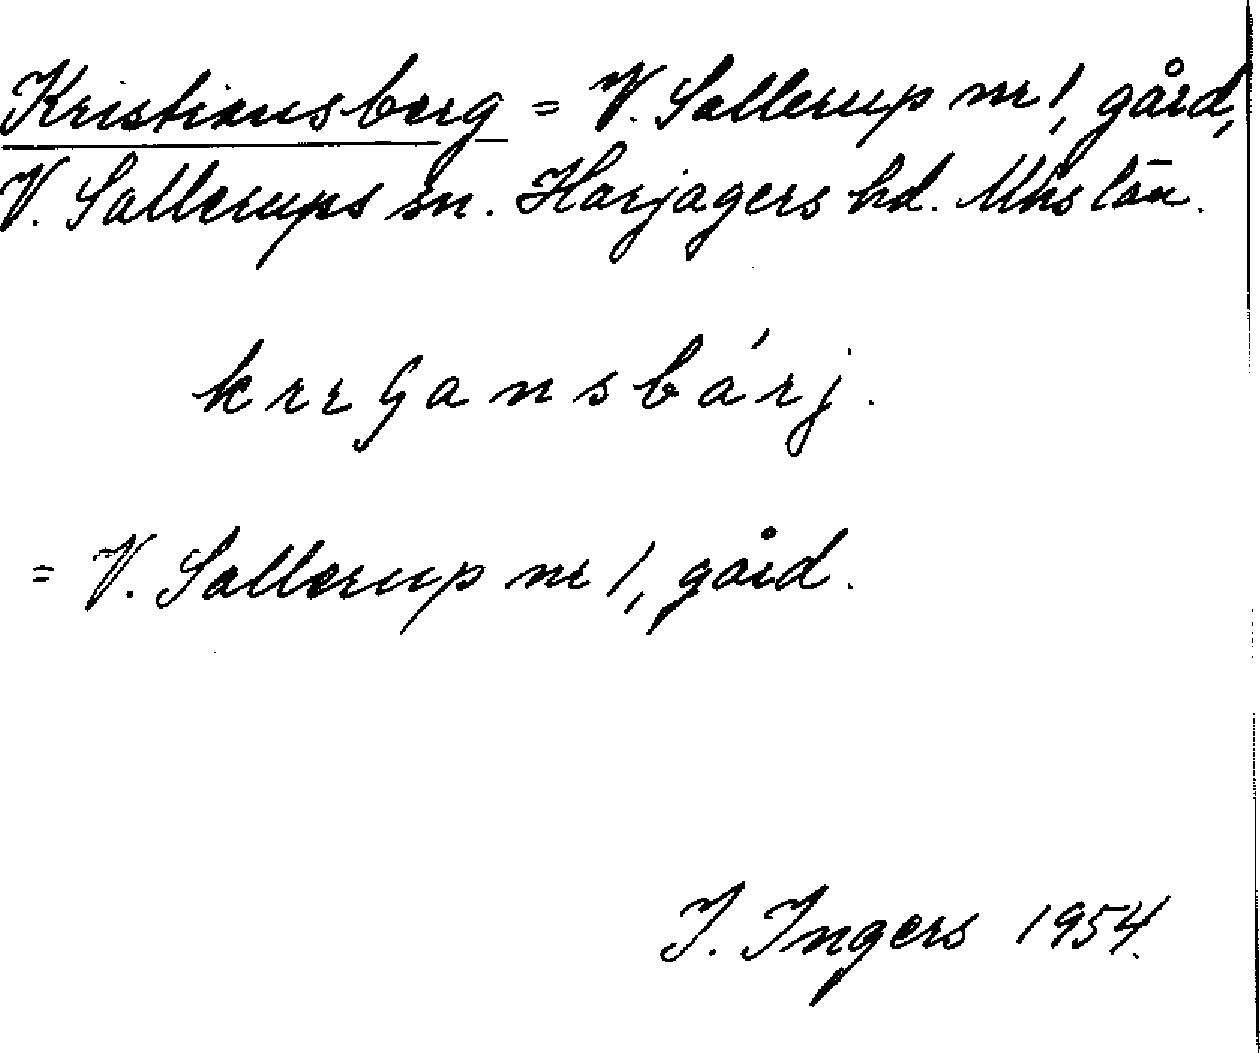 Kristiansberg = V. Sallerup nr 1, gård,
V. Sallerups sn. Harjagers hd. Mhs län.
krɪʃansbárj.
= V. Sallerup nr 1, gård.
I. Ingers 1954.